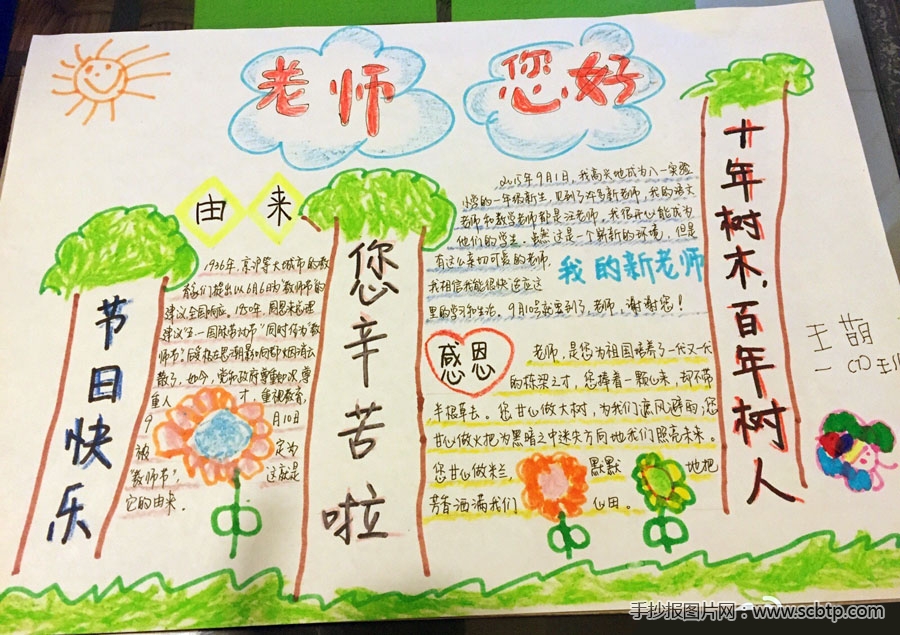 老师 您好
由来
1936年,京沪等大城市的教
师们提出以6月6日为教师节的
建议,全国响应。1950年,周恩来总理
建议"五一国际劳动节"同时作为"教
师节"。
散了。如今,党和政府尊重知识,尊
重人才,重视教育,
9月10日
被定为
"教师节",这就是
它的由来。
节日快乐
您辛苦啦
2015年9月1日,我高兴地成为八一实验
小学的一年级新生,见到了许多新老师,我的语文
老师和数学老师都是汪老师,我很开心能成为
他们的学生。虽然这是一个新新的环境,但是
有这么亲切可爱的老师,
我相信我能很快适应这
里的学习和生活。9月10号就要到了,老师,谢谢您!
我的新老师
感恩
老师,是您为祖国培养了一代又一代
的栋梁之才,您捧着一颗心来,却不带
半根草去。您甘心做大树,为我们遮风避雨;您
甘心做火把,为黑暗之中迷失方向地我们照亮未来。
您甘心做米兰,默默地把
芳香洒满我们心田。
十年树木,百年树人
王萌
手抄报图片网:www.scbtp.com